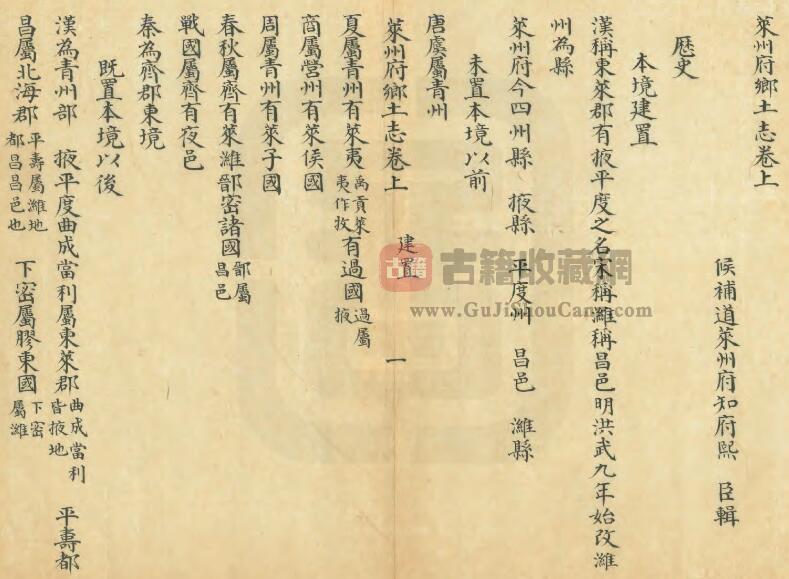 萊州府鄉土志卷上
候補道萊州府知府熙　臣輯
歷史
本境建置
漢稱東萊郡有掖平度之名宋稱濰稱昌邑明洪武九年始改濰
州為縣
萊州府今四州縣　掖縣　平度州　昌邑　濰縣
未置本境以前
唐虞屬青州
萊州府鄉土志卷上　建置　一
夏屬青州有萊夷禹貢萊夷作牧有過國過屬掖
商屬營州有萊侯國
周屬青州有萊子國
春秋屬齊有萊濰鄑密諸國鄑屬昌邑
戰國屬齊有夜邑
秦為齊郡東境
既置本境以後
漢為青州部　掖平度曲成當利屬東萊郡曲成當利皆掖地　平壽都
昌屬北海郡平壽屬濰地都昌昌邑也　下密屬膠東國下密屬濰
古籍
古籍收藏網
www.GuJiShouCang.com